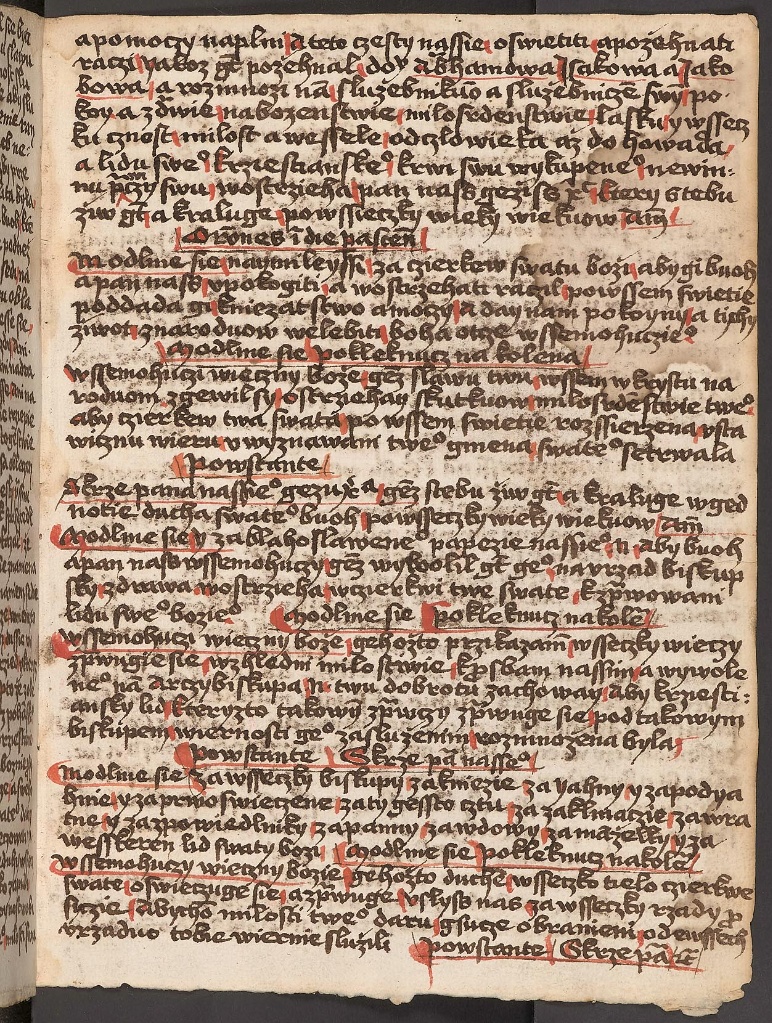 a pomoczy naplnil a teto czesty nassie oswietiti a pozehnati
raczil yakoz gt pozehnal dom Abrhamowa Isakowa a Jako
bowa a rozmnozi na sluzebnikuo a sluzebnicze swy po
koy a zdwie nabozenstwie milosrdenstwie lasku y wssecz
ku cznost milost a wessele od czlowieka az do howada
a lidu sweo krziestianskeo krwi swu wykupeneo newin-
nu przy swu wostrzieha pan nass gezus xt ktery s tebu
ziw gt a kraluge po wssieczky wieky wiekuow am
Omnes in die pascen
Modlme sie naymileyssi za czierkew swatu bozi aby gi buoh
a pan nass vpokogiti a wostrzehati raczil po wssem swietie
poddada gi kniezatstwo a moczy a day nam pokoyny a tichy
ziwot z naroduow welebiti boha otcze wssemohuczieo
Modlme sie pokleknucz na kolena
wssemohuczi wieczny boze gez slawu twu wssem w krystu na
roduom zgewil sy ostrziehay skutkuow milosrdenstwie tweo
aby czierkew twa swata po wssem swietie rozssierzena vsta
wicznu wieru v wyznawani tweo gmena swateo setrwala
Powstante
Skrze pana nasseo gezu xa gez s tebu ziw gt a kraluge w ged
notie ducha swateo buoh po wsseczky wieky wiekuow am
Modlme sie y za blahoslaweneo papezie nassieo n aby buoh
a pan nass wssemohuczy gez wywolil gt geo na vrzad biskup
sky zdrawa wostrzieha w czierkwi twe swate k zprwowani
lidu sweo bozieo Modlme sie pokleknucz na kole
wssemohuczi wieczny boze gehozto przikazam wsseczky wieczy
zprwugie sie wzhledni milostiwie k prosbam nassim a wywole
neo na arczybiskupa N twu dobrotu zachoway aby krziesti-
ansky lid kteryzto takowy zprwczy zprwuge sie pod takowym
biskupem wiernosti geo zasluzenim rozmnozena byla
Powstante Skrze pa nasseo
Modlme sie za wsseczky biskupy za kniezie za yahny y za podya
hnie y za prwo swieczene za ty gessto cztu za zaklinacze za wra
tne y za zpowiedlniky za panny za wdowy za manzelky y za
wessken lid swaty bozi Modlme sie pokleknucz na kole
wssemohuczy wieczny bozie gehozto duche wsseczko tielo czierkwe
swate oswieczuge sie a zprwuge vslyss nas za wsseczky rzady pro
siczie abycho milosti tweo daru gsucze obranieni ode wssech
vrzaduo tobie wiernie sluzili Powstante Skrze pa nt